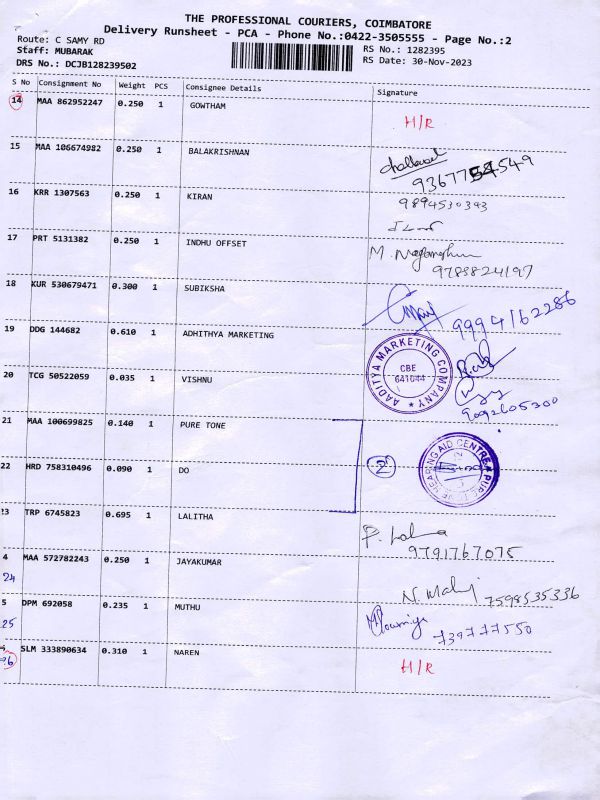 THE PROFESSIONAL COURIERS, COIMBATORE
Delivery Runsheet - PCA - Phone No.:0422-3505555 - Page No.:2
Route: C SAMY RD
RS No.: 1282395
Staff: MUBARAK
RS Date: 30-Nov-2023
DRS No.: DCJB128239502
S No Consignment No Weight PCS Consignee Details Signature
14 MAA 862952247 0.250 1 GOWTHAM H/R
15 MAA 106674982 0.250 1 BALAKRISHNAN
9367754549
16 KRR 1307563 0.250 1 KIRAN 9894530393
17 PRT 5131382 0.250 1 INDHU OFFSET
9789824197
18 KUR 530679471 0.300 1 SUBIKSHA 9994162286
19 DDG 144682 0.610 1 ADHITHYA MARKETING
AADITYA MARKETING COMPANY
CBE
641044
20 TCG 50522059 0.035 1 VISHNU
9092605300
21 MAA 100699825 0.140 1 PURE TONE
22 HRD 758310496 0.090 1 DO 2
PURE TONE HEARING AID CENTRE
23 TRP 6745823 0.695 1 LALITHA
9791767075
4 MAA 572782243 0.250 1 JAYAKUMAR
24 7598535336
5 DPM 692058 0.235 1 MUTHU
25 739777550
26 SLM 333890634 0.310 1 NAREN H/R